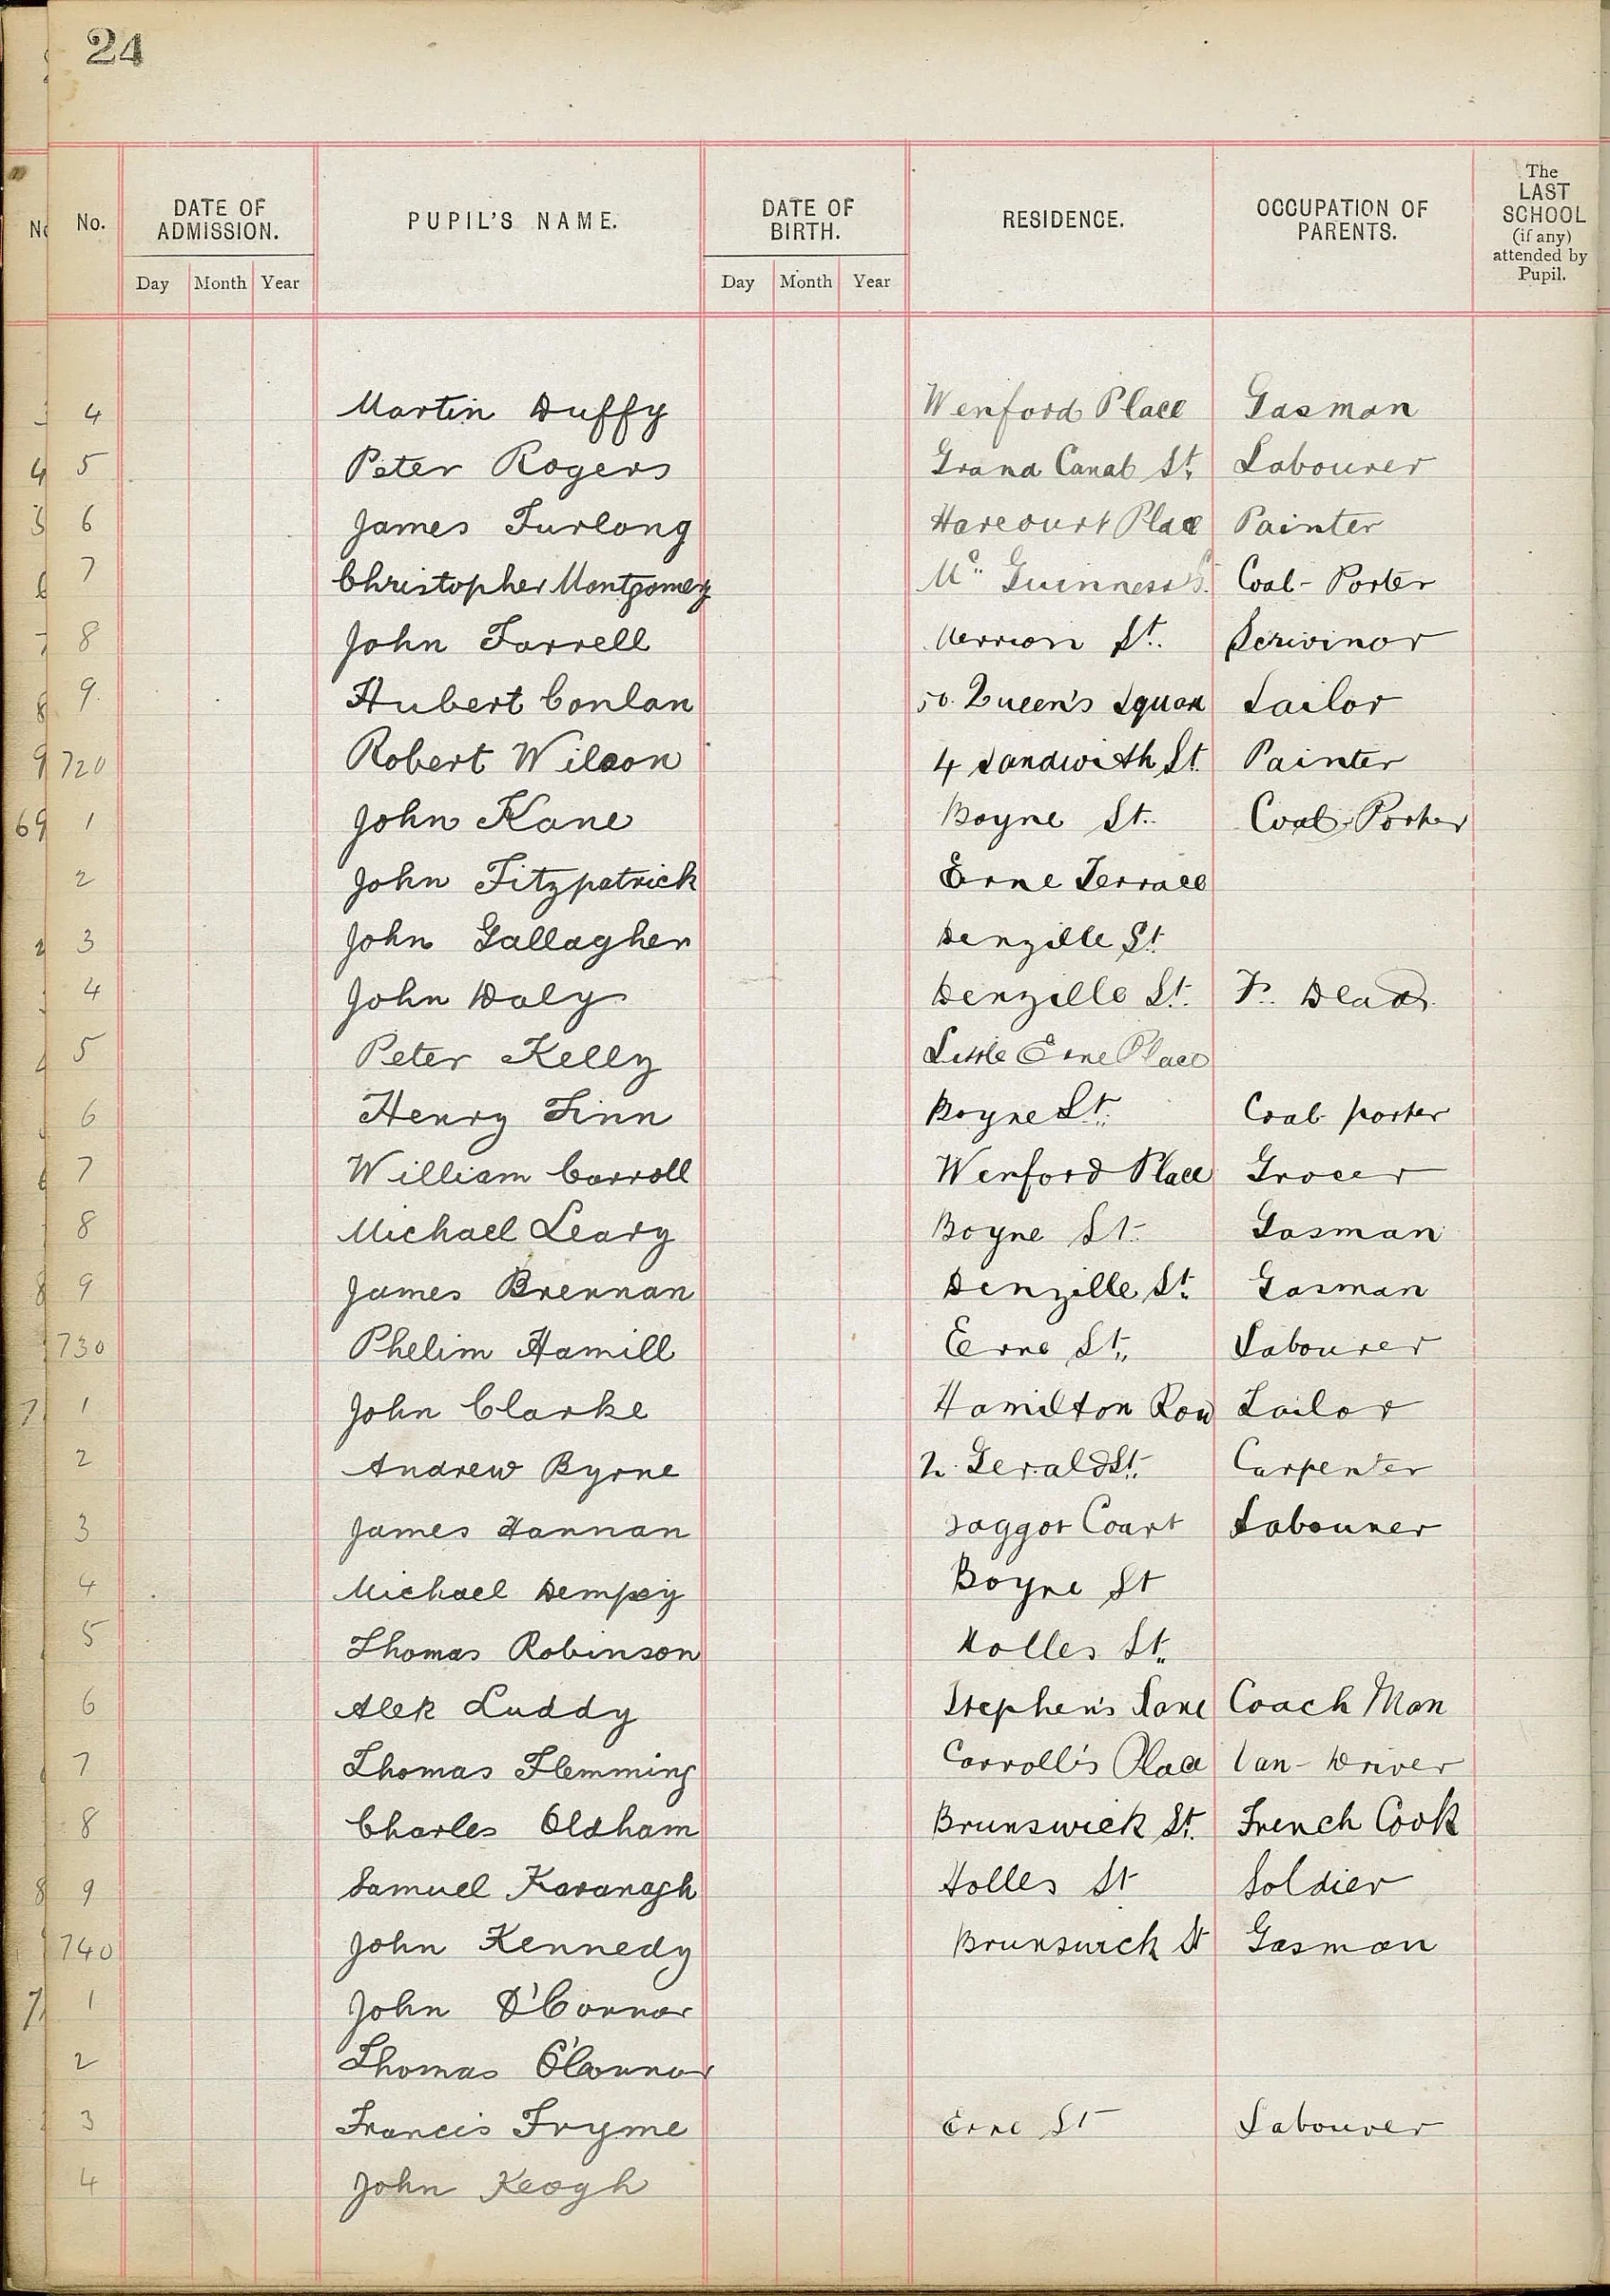 24
No. DATE OF ADMISSION. PUPIL'S NAME. DATE OF BIRTH. RESIDENCE. OCCUPATION OF PARENTS. The LAST SCHOOL (if any) attended by Pupil.
Day Month Year Day Month Year
4 Martin Duffy Wexford Place Gasman
5 Peter Rogers Grand Canal St. Labourer
6 James Furlong Harcourt Place Painter
7 Christopher Montgomery Mc. Guinness Coal-Porter
8 John Farrell Merrion St. Scrivinor
9 Hubert Conlan 50. Queen's Square Sailor
720 Robert Wilson 4 Sandwith St. Painter
1 John Kane Boyne St. Coal-Porter
2 John Fitzpatrick Erne Terrace
3 John Gallagher Denzille St.
4 John Daly Denzille St. F. Dead.
5 Peter Kelly Little Erne Place
6 Henry Finn Boyne St. Coal-porter
7 William Carroll Wexford Place Grocer
8 Michael Leary Boyne St. Gasman
9 James Brennan Denzille St. Gasman
730 Phelim Hamill Erne St. Labourer
1 John Clarke Hamilton Row Tailor
2 Andrew Byrne 2. Gerald St. Carpenter
3 James Hannan Baggot Court Labourer
4 Michael Dempsy Boyne St
5 Thomas Robinson Holles St.
6 Alek Luddy Stephen's Lane Coach Man
7 Thomas Flemming Carroll's Place Van-Driver
8 Charles Oldham Brunswick St. French Cook
9 Samuel Kavanagh Holles St Soldier
740 John Kennedy Brunswick St Gasman
1 John O'Connor
2 Thomas O'Connor
3 Francis Fryme Erne St Labourer
4 John Keogh